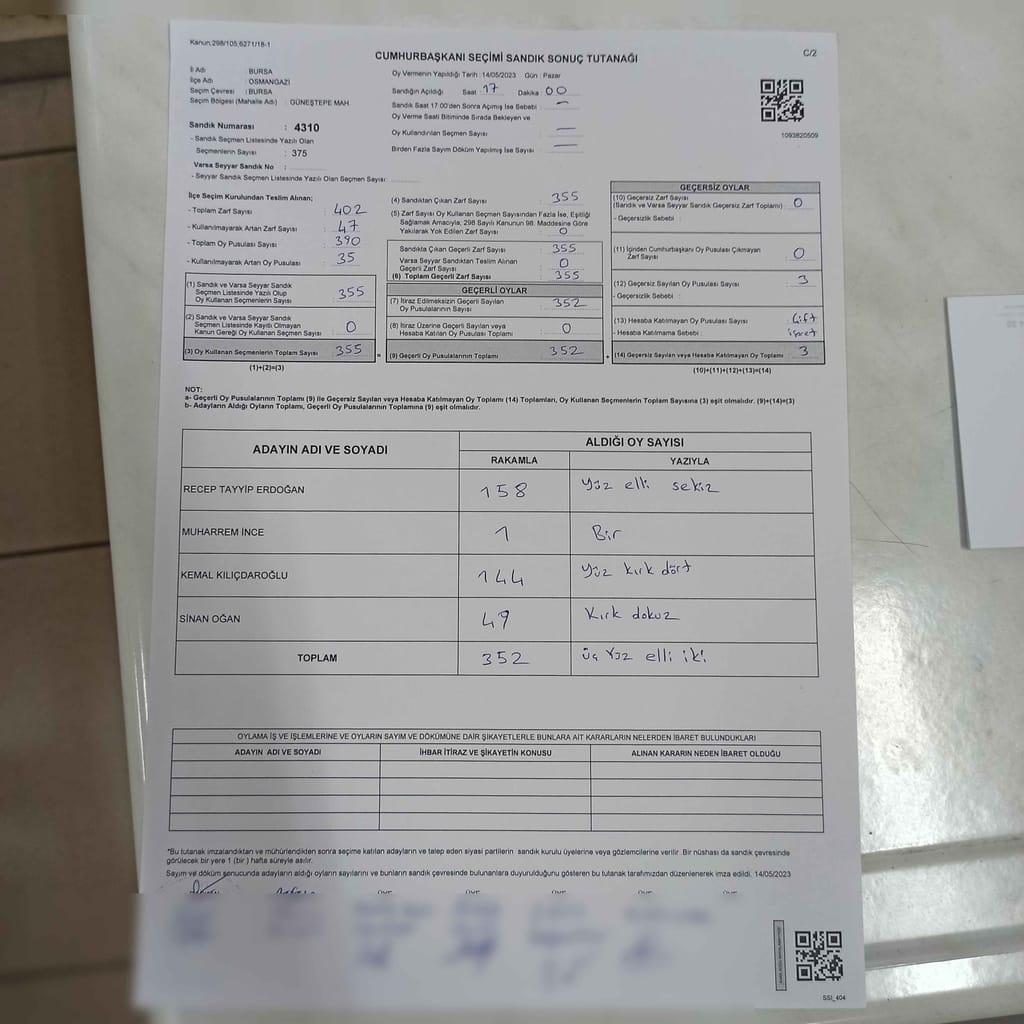 Kanun;298/105;6271/18-1
C/2
CUMHURBAŞKANI SEÇİMİ SANDIK SONUÇ TUTANAĞI
İl Adı : BURSA
İlçe Adı : OSMANGAZİ
Seçim Çevresi : BURSA
Seçim Bölgesi (Mahalle Adı) : GÜNEŞTEPE MAH.
Sandık Numarası : 4310
- Sandık Seçmen Listesinde Yazılı Olan
Seçmenlerin Sayısı : 375
Varsa Seyyar Sandık No :
- Seyyar Sandık Seçmen Listesinde Yazılı Olan Seçmen Sayısı:
Oy Vermenin Yapıldığı Tarih : 14/05/2023 Gün : Pazar
Sandığın Açıldığı Saat : 17 Dakika : 00
Sandık Saat 17:00'den Sonra Açımış İse Sebebi : —
Oy Verme Saati Bitiminde Sırada Bekleyen ve
Oy Kullandırılan Seçmen Sayısı : —
Birden Fazla Sayım Döküm Yapılmış İse Sayısı : —
1093820509
İlçe Seçim Kurulundan Teslim Alınan;
- Toplam Zarf Sayısı : 402
- Kullanılmayarak Artan Zarf Sayısı : 47
- Toplam Oy Pusulası Sayısı : 390
- Kullanılmayarak Artan Oy Pusulası : 35
(1) Sandık ve Varsa Seyyar Sandık
Seçmen Listesinde Yazılı Olup
Oy Kullanan Seçmenlerin Sayısı : 355
(2) Sandık ve Varsa Seyyar Sandık
Seçmen Listesinde Kayıtlı Olmayan
Kanun Gereği Oy Kullanan Seçmen Sayısı : 0
(3) Oy Kullanan Seçmenlerin Toplam Sayısı : 355
(1)+(2)=(3)
(4) Sandıktan Çıkan Zarf Sayısı : 355
(5) Zarf Sayısı Oy Kullanan Seçmen Sayısından Fazla İse, Eşitliği
Sağlamak Amacıyla, 298 Sayılı Kanunun 98. Maddesine Göre
Yakılarak Yok Edilen Zarf Sayısı : 0
Sandıkta Çıkan Geçerli Zarf Sayısı : 355
Varsa Seyyar Sandıktan Teslim Alınan
Geçerli Zarf Sayısı : 0
(6) Toplam Geçerli Zarf Sayısı : 355
GEÇERLİ OYLAR
(7) İtiraz Edilmeksizin Geçerli Sayılan
Oy Pusulalarının Sayısı : 352
(8) İtiraz Üzerine Geçerli Sayılan veya
Hesaba Katılan Oy Pusulası Toplamı : 0
(9) Geçerli Oy Pusulalarının Toplamı : 352
GEÇERSİZ OYLAR
(10) Geçersiz Zarf Sayısı
(Sandık ve Varsa Seyyar Sandık Geçersiz Zarf Toplamı) : 0
- Geçersizlik Sebebi :
(11) İçinden Cumhurbaşkanı Oy Pusulası Çıkmayan
Zarf Sayısı : 0
(12) Geçersiz Sayılan Oy Pusulası Sayısı : 3
- Geçersizlik Sebebi :
(13) Hesaba Katılmayan Oy Pusulası Sayısı : Çift
- Hesaba Katılmama Sebebi : işaret
(14) Geçersiz Sayılan veya Hesaba Katılmayan Oy Toplamı : 3
(10)+(11)+(12)+(13)=(14)
NOT:
a- Geçerli Oy Pusulalarının Toplamı (9) ile Geçersiz Sayılan veya Hesaba Katılmayan Oy Toplamı (14) Toplamları, Oy Kullanan Seçmenlerin Toplam Sayısına (3) eşit olmalıdır. (9)+(14)=(3)
b- Adayların Aldığı Oyların Toplamı, Geçerli Oy Pusulalarının Toplamına (9) eşit olmalıdır.
ADAYIN ADI VE SOYADI ALDIĞI OY SAYISI
RAKAMLA YAZIYLA
RECEP TAYYİP ERDOĞAN 158 Yüz elli sekiz
MUHARREM İNCE 1 Bir
KEMAL KILIÇDAROĞLU 144 Yüz kırk dört
SİNAN OĞAN 49 Kırk dokuz
TOPLAM 352 üç Yüz elli iki
OYLAMA İŞ VE İŞLEMLERİNE VE OYLARIN SAYIM VE DÖKÜMÜNE DAİR ŞİKAYETLERLE BUNLARA AİT KARARLARIN NELERDEN İBARET BULUNDUKLARI
ADAYIN ADI VE SOYADI İHBAR İTİRAZ VE ŞİKAYETİN KONUSU ALINAN KARARIN NEDEN İBARET OLDUĞU
*Bu tutanak imzalandıktan ve mühürlendikten sonra seçime katılan adayların ve talep eden siyasi partilerin sandık kurulu üyelerine veya gözlemcilerine verilir. Bir nüshası da sandık çevresinde
görülecek bir yere 1 (bir) hafta süreyle asılır.
Sayım ve döküm sonucunda adayların aldığı oyların sayılarını ve bunların sandık çevresinde bulunanlara duyurulduğunu gösteren bu tutanak tarafımızdan düzenlenerek imza edildi. 14/05/2023
SSI_404